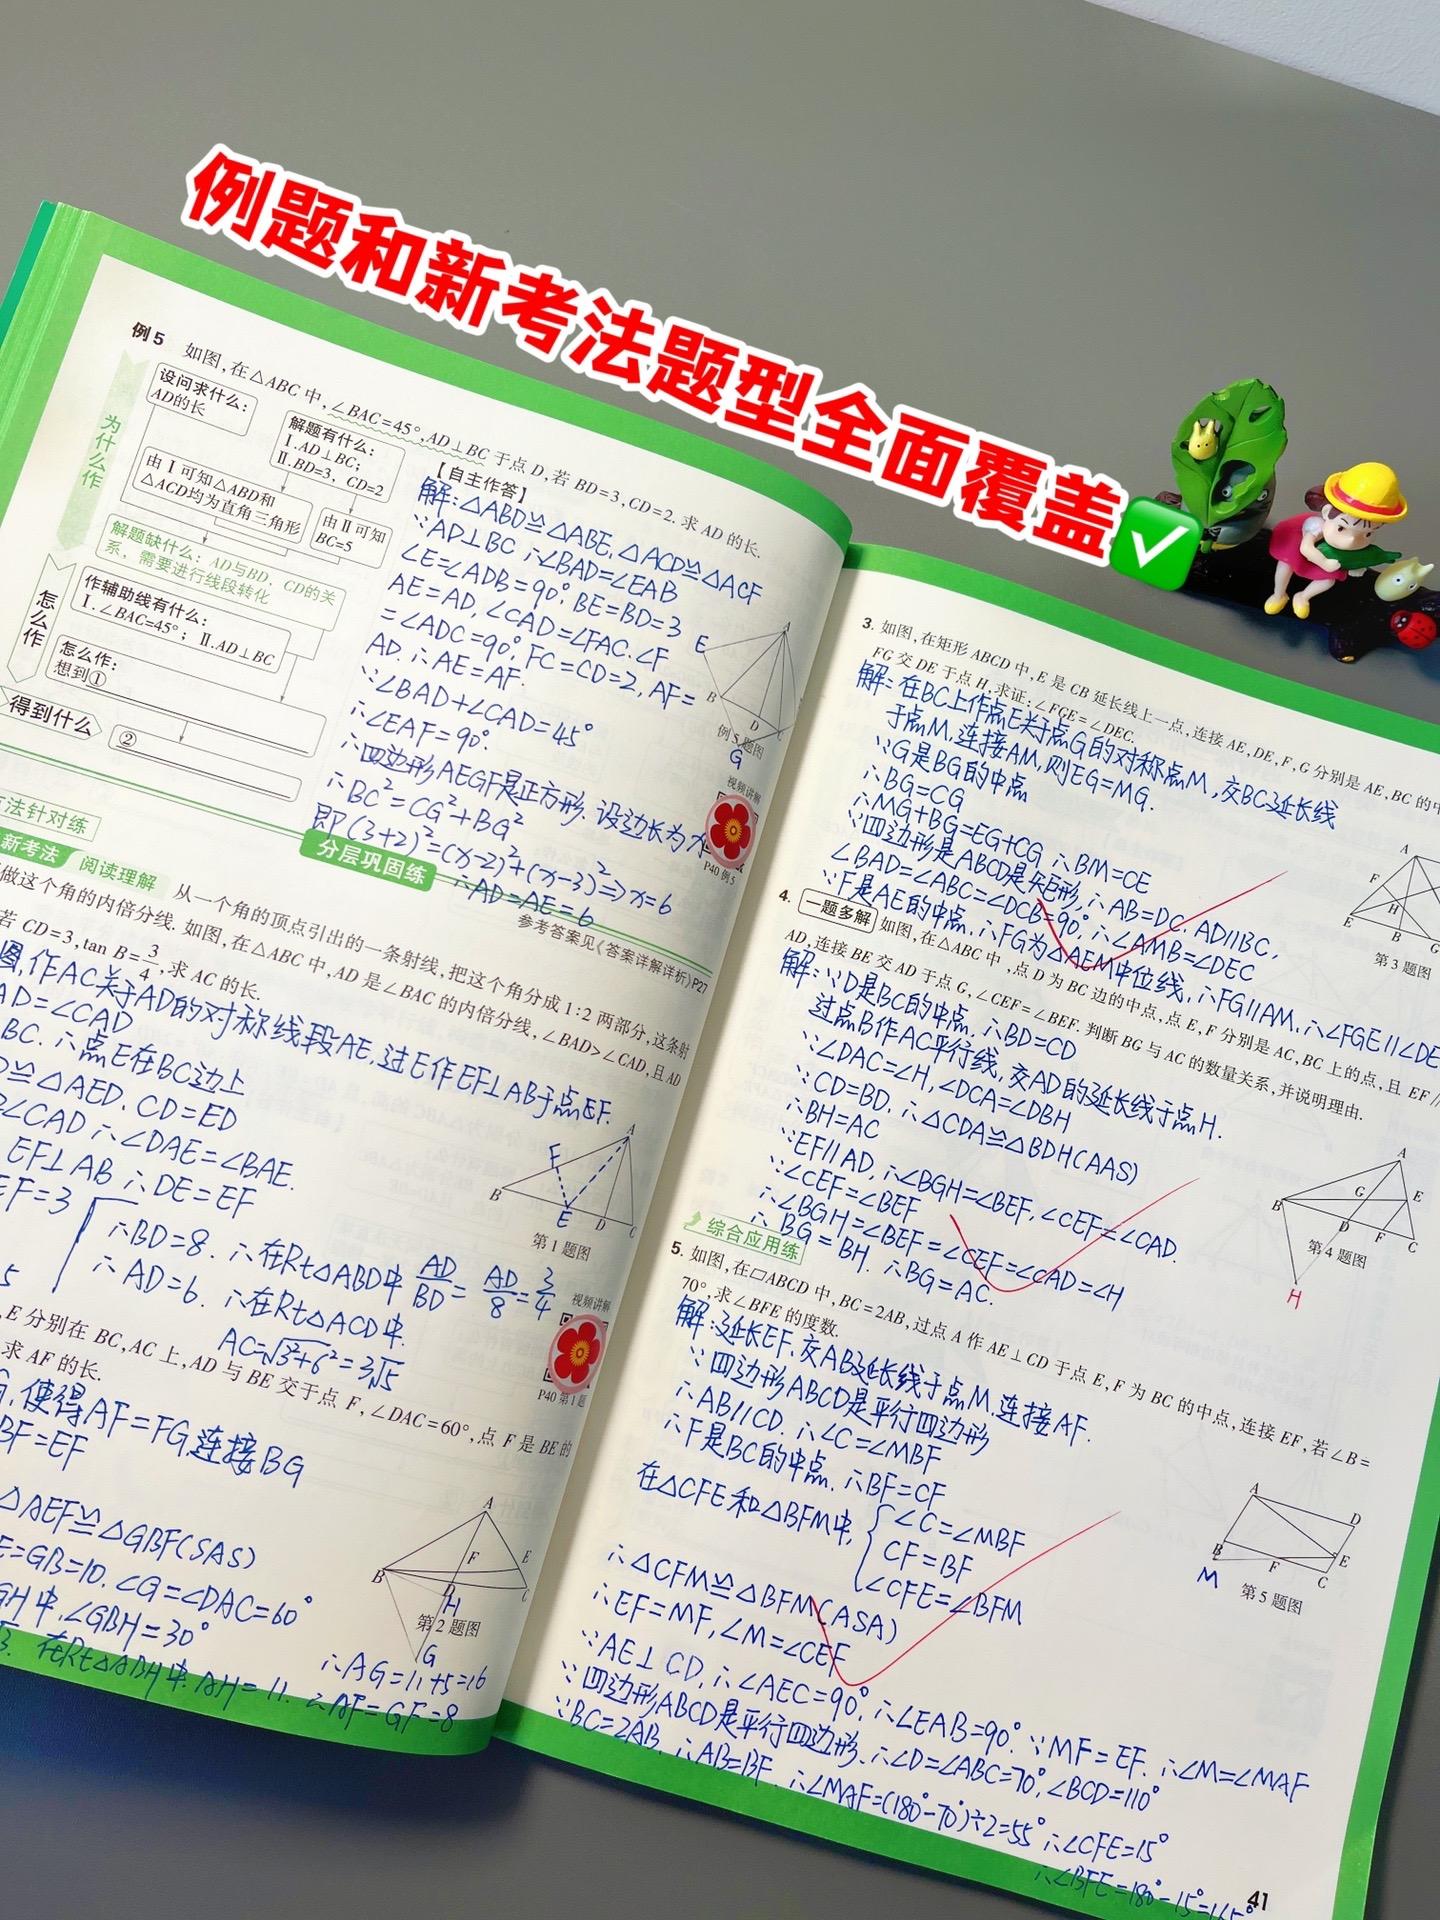 例题和新考法题型全面覆盖
例5 如图,在△ABC中,∠BAC=45°,AD⊥BC于点D,若BD=3,CD=2,求AD的长.
为什么作
设问求什么:
AD的长
解题有什么:
Ⅰ.AD⊥BC;
Ⅱ.BD=3, CD=2
由Ⅰ可知△ABD和
△ACD均为直角三角形
由Ⅱ可知
BC=5
解题缺什么: AD与BD、CD的关
系,需要进行线段转化
怎么作
作辅助线有什么:
Ⅰ.∠BAC=45°; Ⅱ.AD⊥BC
怎么作:
想到①
得到什么
②
【自主作答】
解:△ABD≌△ABE,△ACD≌△ACF
∵AD⊥BC ∴∠BAD=∠EAB
∠E=∠ADB=90°, BE=BD=3
AE=AD, ∠CAD=∠FAC.∠F
=∠ADC=90°, FC=CD=2, AF=
AD. ∴AE=AF.
∵∠BAD+∠CAD=45°
∴∠EAF=90°.
∴四边形AEGF是正方形. 设边长为x
∴BC²=CG²+BG²
即(3+2)²=(x-2)²+(x-3)²⇒x=6
∴AD=AE=6
E
A
B
D
C
例5题图
G
视频讲解
P40 例5
法针对练
分层巩固练
参考答案见《答案详解详析》P27
新考法 阅读理解 从一个角的顶点引出的一条射线,把这个角分成1:2两部分,这条射
做这个角的内倍分线. 如图,在△ABC中,AD是∠BAC的内倍分线,∠BAD>∠CAD,且AD
若CD=3,tan B=3/4,求AC的长.
图,作AC关于AD的对称线段AE,过E作EF⊥AB于点EF.
AD=∠CAD
BC. ∴点E在BC边上
≌△AED. CD=ED
∠CAD ∴∠DAE=∠BAE.
EF⊥AB ∴DE=EF
EF=3
∴BD=8. ∴在Rt△ABD中 AD/BD= AD/8=3/4
5
∴AD=6. ∴在Rt△ACD中.
AC=√3²+6²=3√5
A
F
B
E
D
C
第1题图
视频讲解
P40 第1题
,E分别在BC,AC上,AD与BE交于点F,∠DAC=60°,点F是BE的
求AF的长.
使得AF=FG,连接BG
BF=EF
△AEF≌△GBF(SAS)
E=GB=10. ∠G=∠DAC=60°
GH中, ∠GBH=30°
3. 在Rt△ABH中. AH=11.
∴AG=11+5=16
∴AF=GF=8
A
F
E
B
D
H
C
第2题图
G
3. 如图,在矩形ABCD中,E是CB延长线上一点,连接AE,DE,F,G分别是AE,BC的中
FG交DE于点H.求证:∠FGE=∠DEC.
解:在BC上作点E关于点G的对称点M,交BC延长线
于点M,连接AM,则EG=MG.
∵G是BG的中点
∴BG=CG
∴MG+BG=EG+CG ∴BM=CE
∵四边形是ABCD是矩形,∴AB=DC. AD∥BC,
∠BAD=∠ABC=∠DCB=90°, ∴∠AMB=∠DEC
∵F是AE的中点.∴FG为△AEM中位线,∴FG∥AM.∴∠FGE∥∠DE
A
F
H
E
B
G
第3题图
4. 一题多解 如图,在△ABC中,点D为BC边的中点,点E,F分别是AC,BC上的点,且EF∥
AD,连接BE交AD于点G,∠CEF=∠BEF.判断BG与AC的数量关系,并说明理由.
解:∵D是BC的中点. ∴BD=CD
过点B作AC平行线,交AD的延长线于点H.
∵∠DAC=∠H,∠DCA=∠DBH
∵CD=BD. ∴△CDA≌△BDH(AAS)
∴BH=AC
∵EF∥AD, ∴∠BGH=∠BEF, ∠CEF=∠CAD.
∵∠CEF=∠BEF
∴∠BGH=∠BEF=∠CEF=∠CAD=∠H
∴BG=BH. ∴BG=AC.
A
G
E
B
D
F
C
第4题图
H
综合应用练
5. 如图,在▱ABCD中,BC=2AB,过点A作AE⊥CD于点E,F为BC的中点,连接EF,若∠B=
70°,求∠BFE的度数.
解:延长EF.交AB延长线于点M.连接AF.
∵四边形ABCD是平行四边形
∴AB∥CD. ∴∠C=∠MBF
∴F是BC的中点. ∴BF=CF
在△CFE和△BFM中,
∠C=∠MBF
CF=BF
∠CFE=∠BFM
∴△CFM≌△BFM(ASA)
∴EF=MF, ∠M=∠CEF
∵AE⊥CD, ∴∠AEC=90°, ∴∠EAB=90°. ∵MF=EF. ∴∠M=∠MAF
∵四边形ABCD是平行四边形.∴∠D=∠ABC=70°, ∠BCD=110°
∵BC=2AB. ∴AB=BF. ∴∠MAF=(180°-70°)÷2=55° ∴∠CFE=15°
∴∠BFE=180°-15°=165°
A
D
B
F
E
C
M
第5题图
41